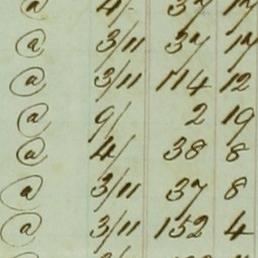 @ 4/- 37 17
@ 3/11 37 17
@ 3/11 114 12
@ 9/ 2 19
@ 4/ 38 8
@ 3/11 37 8
@ 3/11 152 4